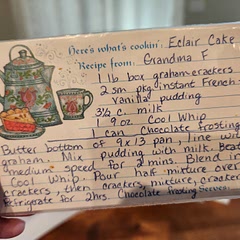 Here's what's cookin': Eclair Cake
Recipe from: Grandma F
1 lb box graham crackers
2 sm pkg instant French
Vanilla pudding
3½ c. milk
1 9oz Cool Whip
1 can Chocolate frosting
Butter bottom of 9x13 pan, line with
graham. Mix pudding with milk. Beat
medium speed for 2 mins. Blend in
Cool Whip. Pour half mixture over
crackers, then crackers, mixture, crackers
Refrigerate for 2hrs. Chocolate frosting Serves: